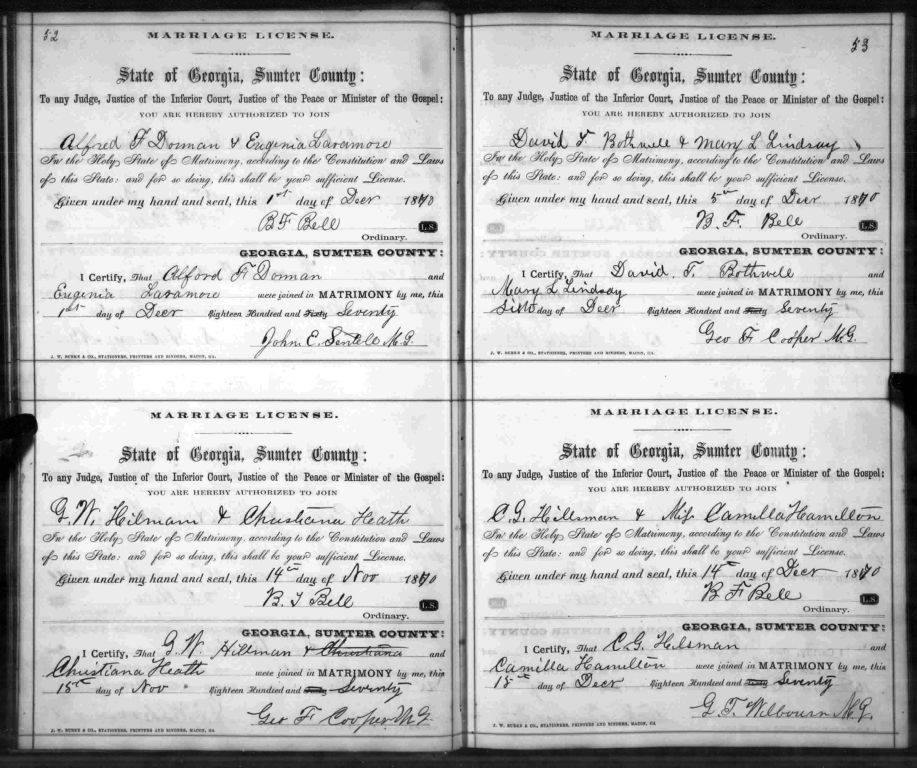 52
MARRIAGE LICENSE.
State of Georgia, Sumter County:
To any Judge, Justice of the Inferior Court, Justice of the Peace or Minister of the Gospel:
YOU ARE HEREBY AUTHORIZED TO JOIN
Alfred F Dorman & Eugenia Laramore
In the Holy State of Matrimony, according to the Constitution and Laws
of this State: and for so doing, this shall be your sufficient License.
Given under my hand and seal, this 1st day of Decr 1870
B F Bell L.S.
Ordinary.
GEORGIA, SUMTER COUNTY:
I Certify, That Alford F Dorman and
Eugenia Laramore were joined in MATRIMONY by me, this
1st day of Decr Eighteen Hundred and Sixty Seventy
John E Sentell M.G.
J. W. BURKE & CO., STATIONERS, PRINTERS AND BINDERS, MACON, GA.
MARRIAGE LICENSE.
State of Georgia, Sumter County:
To any Judge, Justice of the Inferior Court, Justice of the Peace or Minister of the Gospel:
YOU ARE HEREBY AUTHORIZED TO JOIN
G. W. Hilmam & Christiana Heath
In the Holy State of Matrimony, according to the Constitution and Laws
of this State: and for so doing, this shall be your sufficient License.
Given under my hand and seal, this 14th day of Nov 1870
B. F Bell L.S.
Ordinary.
GEORGIA, SUMTER COUNTY:
I Certify, That G. W. Hillman & Christiana and
Christiana Heath were joined in MATRIMONY by me, this
15th day of Nov Eighteen Hundred and Sixty Seventy
Geo F Cooper M.G.
J. W. BURKE & CO., STATIONERS, PRINTERS AND BINDERS, MACON, GA.
53
MARRIAGE LICENSE.
State of Georgia, Sumter County:
To any Judge, Justice of the Inferior Court, Justice of the Peace or Minister of the Gospel:
YOU ARE HEREBY AUTHORIZED TO JOIN
David T. Bothwell & Mary L Lindsay
In the Holy State of Matrimony, according to the Constitution and Laws
of this State: and for so doing, this shall be your sufficient License.
Given under my hand and seal, this 5th day of Decr 1870
B. F. Bell L.S.
Ordinary.
GEORGIA, SUMTER COUNTY:
I Certify, That David T. Bothwell and
Mary L Lindsay were joined in MATRIMONY by me, this
day of Decr Eighteen Hundred and Sixty Seventy
Geo F Cooper M.G.
J. W. BURKE & CO., STATIONERS, PRINTERS AND BINDERS, MACON, GA.
MARRIAGE LICENSE.
State of Georgia, Sumter County:
To any Judge, Justice of the Inferior Court, Justice of the Peace or Minister of the Gospel:
YOU ARE HEREBY AUTHORIZED TO JOIN
C. G. Hillsman & Miss Camilla Hamilton
In the Holy State of Matrimony, according to the Constitution and Laws
of this State: and for so doing, this shall be your sufficient License.
Given under my hand and seal, this 14th day of Decr 1870
B F Bell L.S.
Ordinary.
GEORGIA, SUMTER COUNTY:
I Certify, That C. G. Hilsman and
Camilla Hamilton were joined in MATRIMONY by me, this
15th day of Decr Eighteen Hundred and Sixty Seventy
G. T. Wilbourn M.G.
J. W. BURKE & CO., STATIONERS, PRINTERS AND BINDERS, MACON, GA.